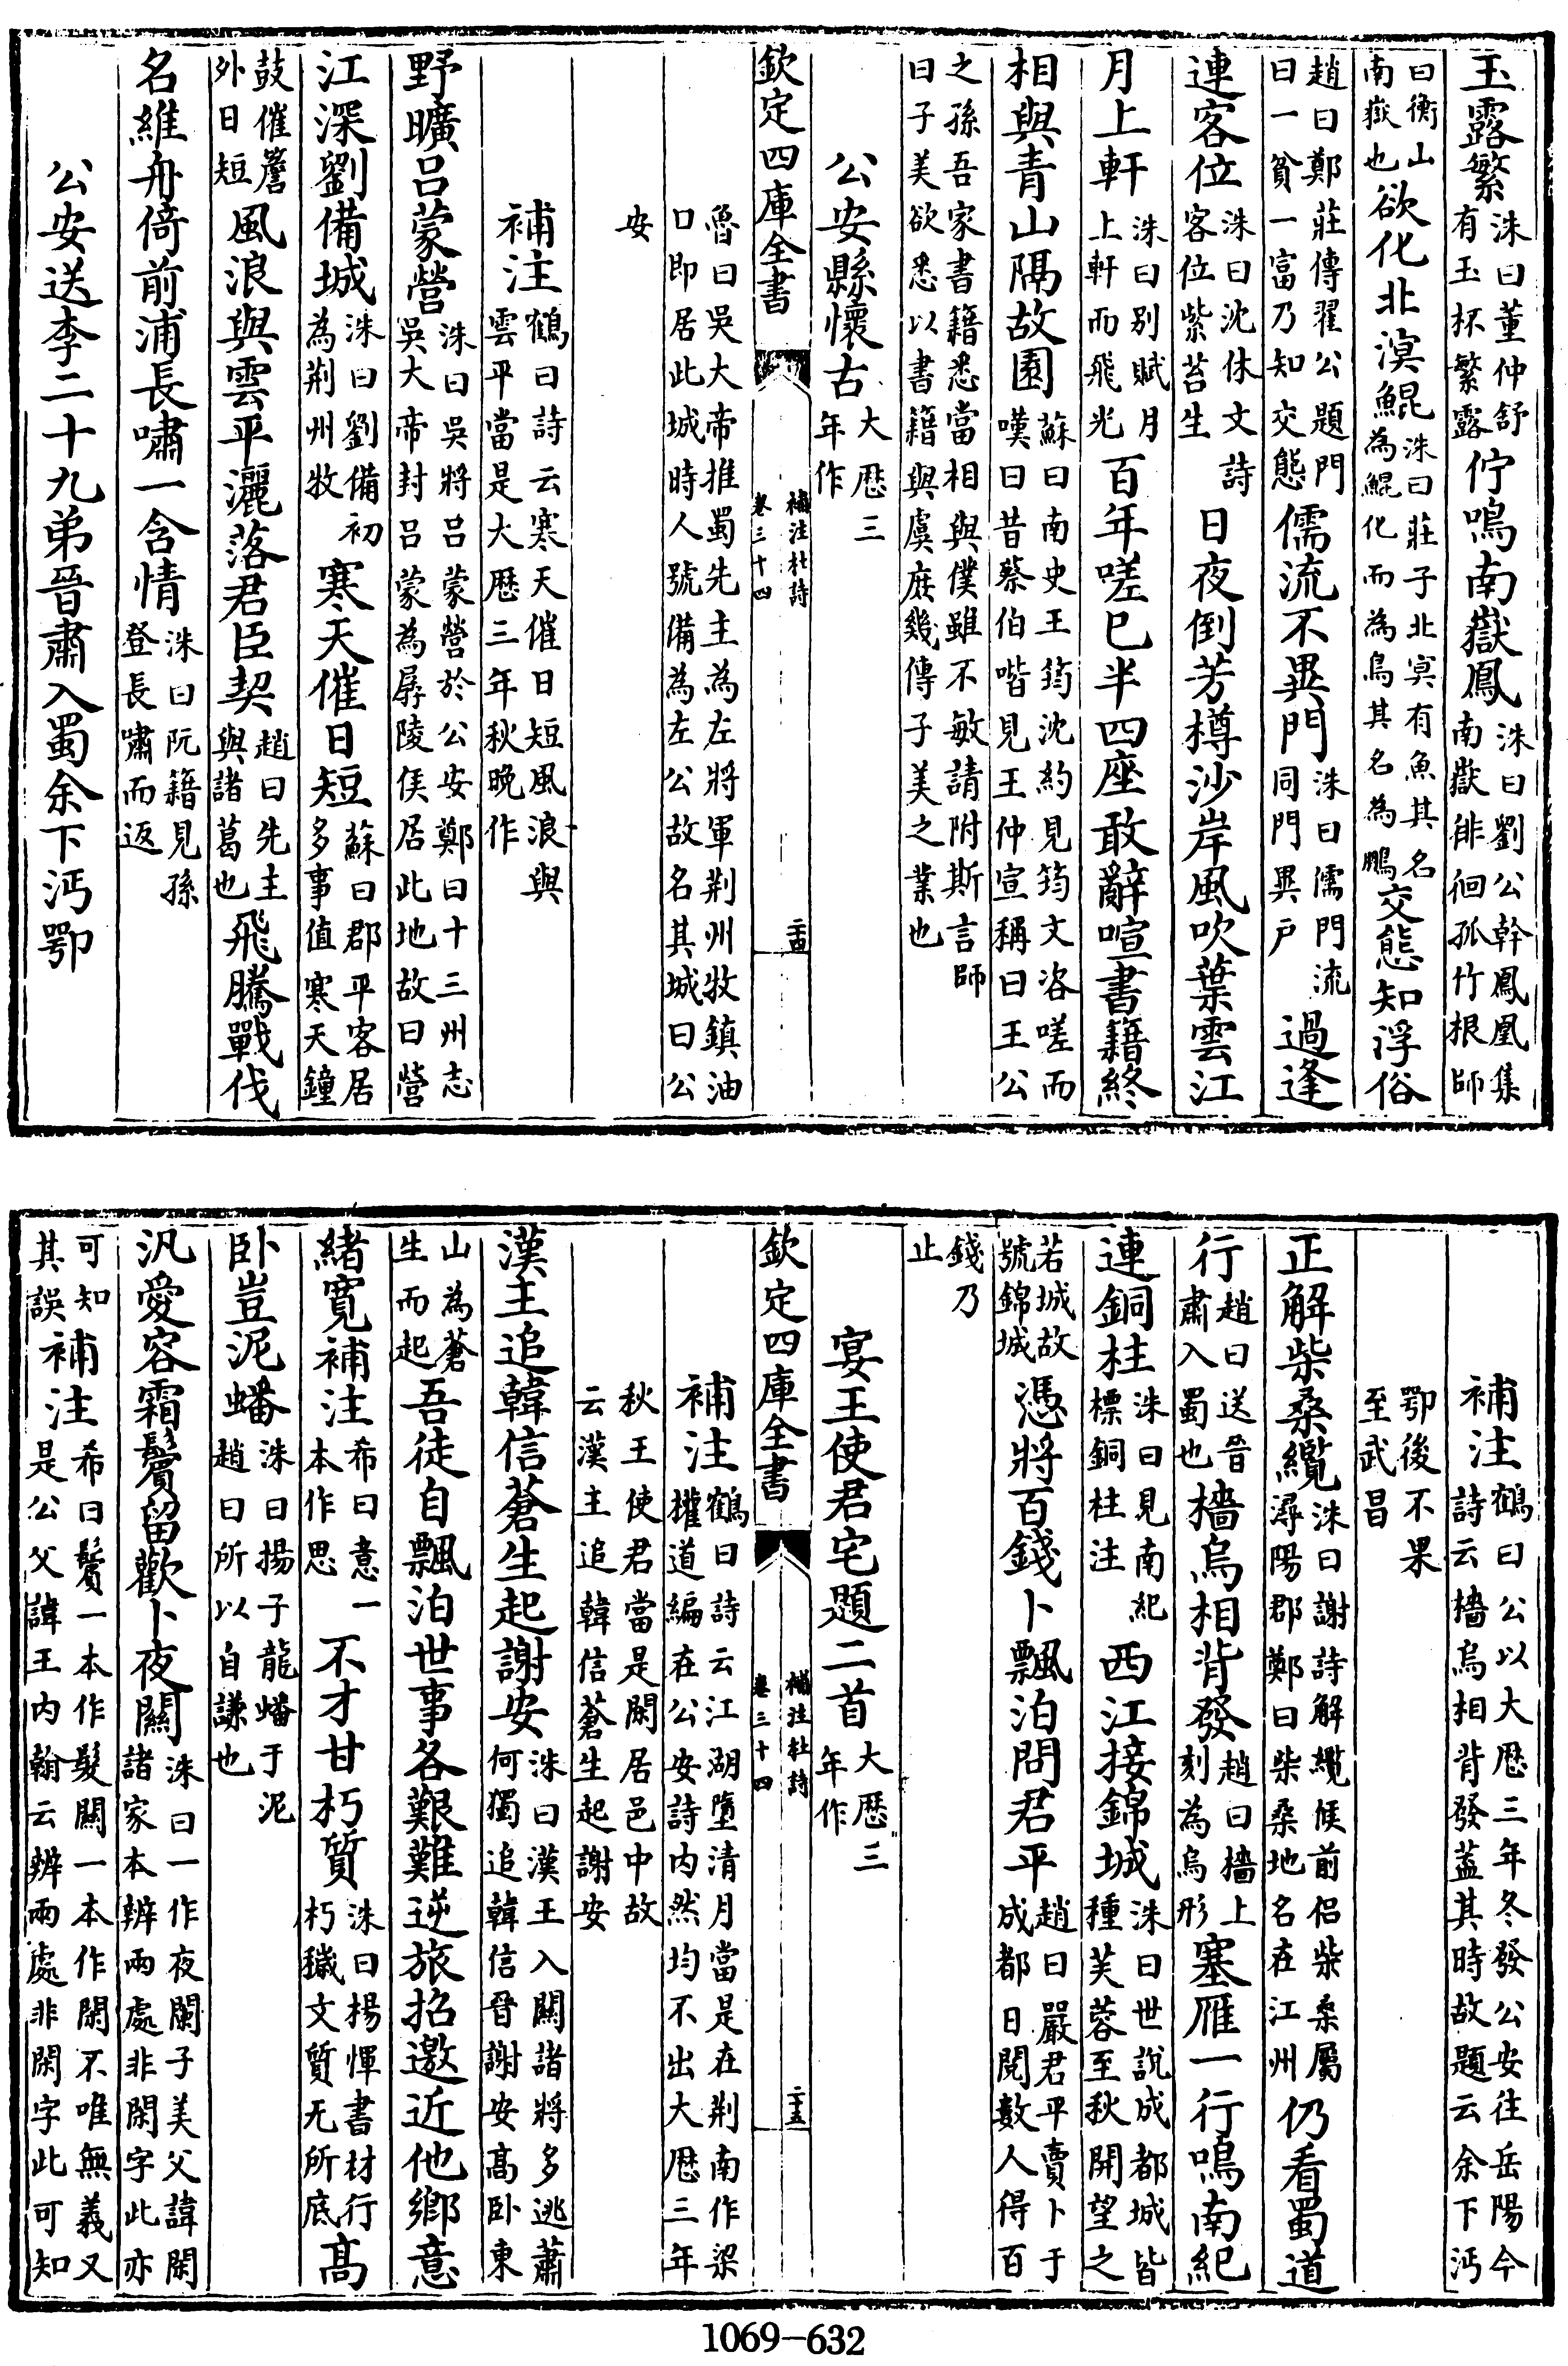 玉露繁洙曰董仲舒有玉杯繁露佇鳴南嶽鳳洙曰劉公幹鳳凰集南嶽徘徊孤竹根師
曰衡山南嶽也欲化北溟鯤洙曰莊子北冥有魚其名為鯤化而為鳥其名為鵬交態知浮俗
趙曰鄭莊傳翟公題門曰一貧一富乃知交態儒流不異門洙曰儒門流同門異戶過逢
連客位洙曰沈休文詩客位紫苔生日夜倒芳樽沙岸風吹葉雲江
月上軒洙曰别賦月上軒而飛光百年嗟已半四座敢辭喧書籍終
相與青山隔故園蘇曰南史王筠沈約見筠文咨嗟而嘆曰昔蔡伯喈見王仲宣稱曰王公
之孫吾家書籍悉當相與僕雖不敏請附斯言師曰子美欲悉以書籍與虞庶幾傳子美之業也
公安縣懷古大厯三年作
欽定四庫全書
補注杜詩
卷三十四
二十四
魯曰吳大帝推蜀先主為左將軍荆州牧鎮油口即居此城時人號備為左公故名其城曰公
安
補注鶴曰詩云寒天催日短風浪與雲平當是大厯三年秋晚作
野曠吕蒙營洙曰吳將吕蒙營於公安鄭曰十三州志吳大帝封吕蒙為孱陵侯居此地故曰營
江深劉備城洙曰劉備初為荆州牧寒天催日短蘇曰郡平客居多事值寒天鐘
鼓催簷外日短風浪與雲平灑落君臣契趙曰先主與諸葛也飛騰戰伐
名維舟倚前浦長嘯一含情洙曰阮籍見孫登長嘯而返
公安送李二十九弟晉肅入蜀余下沔鄂
補注鶴曰公以大厯三年冬發公安往岳陽今詩云檣烏相背發蓋其時故題云余下沔
鄂後不果至武昌
正解柴桑纜洙曰謝詩解纜候前侣柴桑屬潯陽郡鄭曰柴桑地名在江州仍看蜀道
行趙曰送晉肅入蜀也檣烏相背發趙曰檣上刻為烏形塞雁一行鳴南紀
連銅柱洙曰見南紀標銅柱注西江接錦城洙曰世說成都城皆種芙蓉至秋開望之
若城故號錦城憑將百錢卜飄泊問君平趙曰嚴君平賣卜于成都日閱數人得百
錢乃止
宴王使君宅題二首大厯三年作
欽定四庫全書
補注杜詩
卷三十四
二十五
補注鶴曰詩云江湖墮清月當是在荆南作梁權道編在公安詩内然均不出大厯三年
秋王使君當是閑居邑中故云漢主追韓信蒼生起謝安
漢主追韓信蒼生起謝安洙曰漢王入關諸將多逃蕭何獨追韓信晉謝安高卧東
山為蒼生而起吾徒自飄泊世事各艱難逆旅招邀近他鄉意
緒寛補注希曰意一本作思不才甘朽質洙曰楊惲書材行朽穢文質无所底高
卧豈泥蟠洙曰揚子龍蟠于泥趙曰所以自謙也
汎愛容霜鬢留歡卜夜闌洙曰一作夜闌子美父諱閑諸家本辨兩處非閑字此亦
可知補注希曰鬢一本作髮闌一本作閑不唯無義又其誤是公父諱王内翰云辨兩處非閑字此可知
1069-632